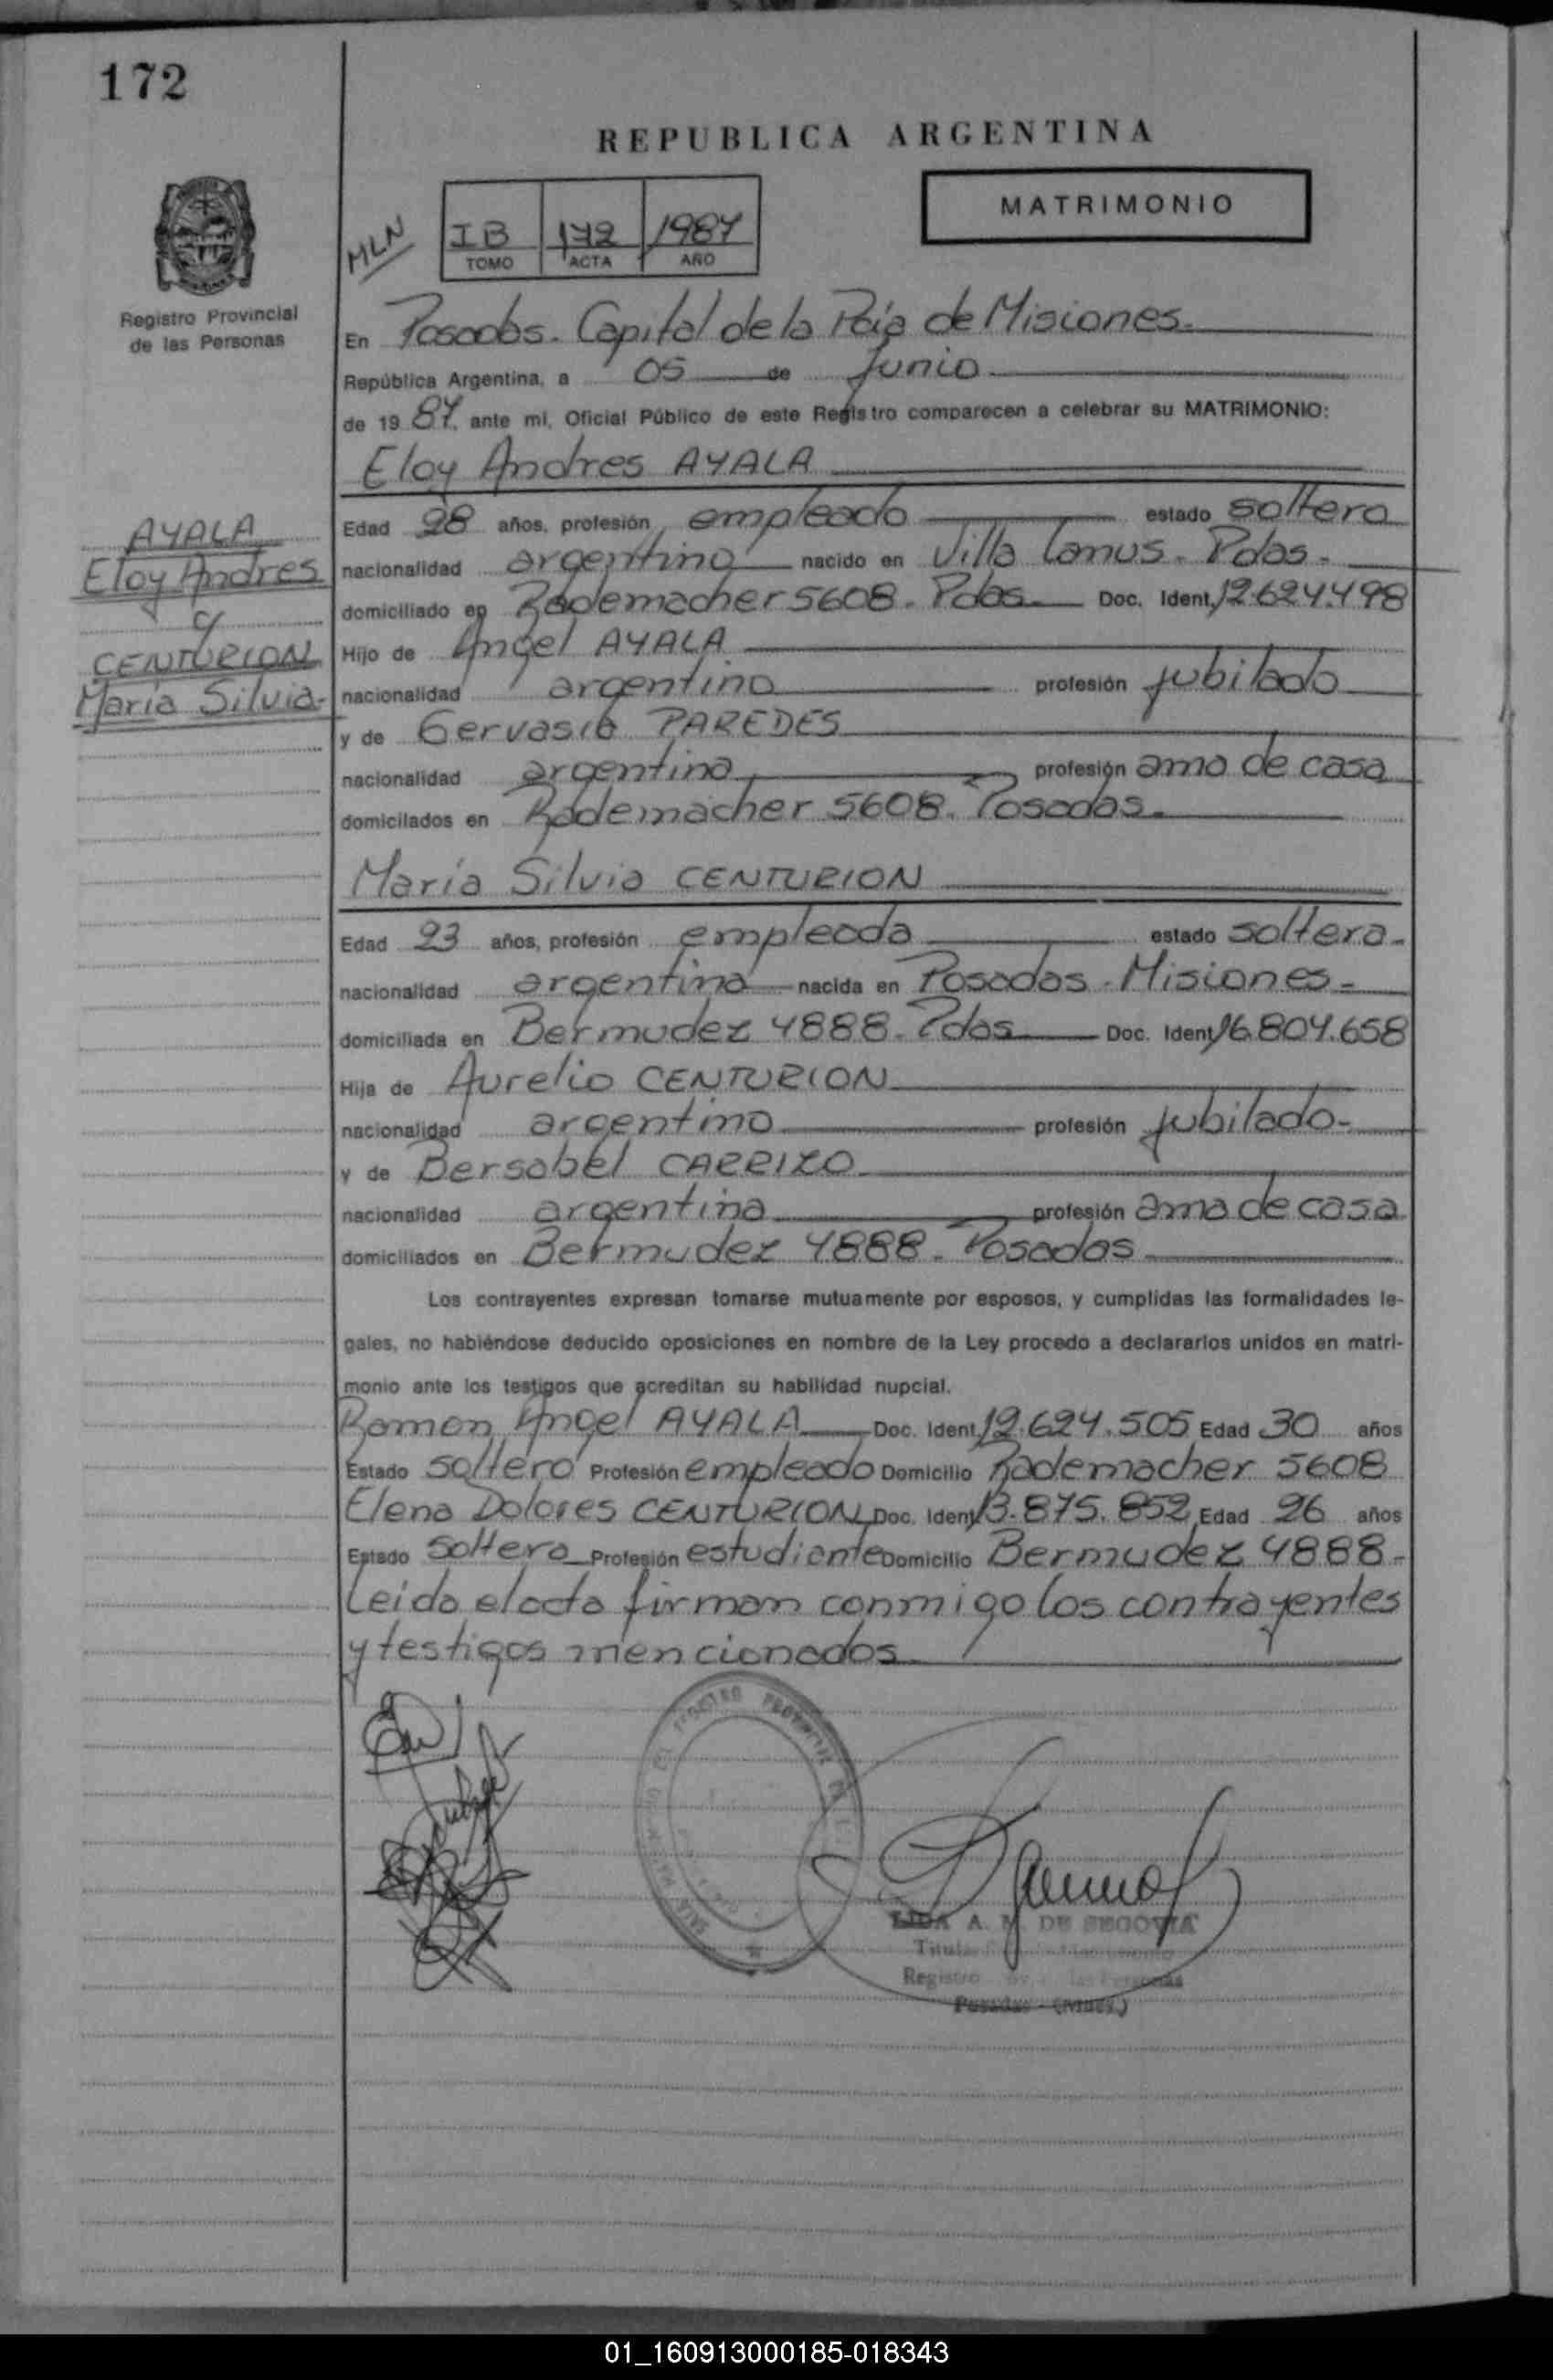 172
REPUBLICA ARGENTINA
MATRIMONIO
MLN
IB 172 1987
TOMO ACTA AÑO
Registro Provincial
de las Personas
En Posadas. Capital de la Pcia de Misiones.
República Argentina, a 05 de Junio
de 19 87. ante mi, Oficial Público de este Registro comparecen a celebrar su MATRIMONIO:
Eloy Andres AYALA
AYALA
Eloy Andres
c/
CENTURION
María Silvia-
Edad 28 años, profesión empleado estado soltero
nacionalidad argentino nacido en Villa Lanus. Pdas.
domiciliado en Rademacher 5608. Pdas. Doc. Ident. 12.624.498
Hijo de Angel AYALA
nacionalidad argentino profesión jubilado
y de Gervasia PAREDES
nacionalidad argentina profesión ama de casa
domicilados en Rademacher 5608. Posadas.
María Silvia CENTURION
Edad 23 años, profesión empleada estado soltera-
nacionalidad argentina nacida en Posadas. Misiones-
domiciliada en Bermudez 4888. Pdas Doc. Ident. 16.804.658
Hija de Aurelio CENTURION
nacionalidad argentino profesión jubilado-
y de Bersabel CARRIZO
nacionalidad argentina profesión ama de casa
domiciliados en Bermudez 4888. Posadas
Los contrayentes expresan tomarse mutuamente por esposos, y cumplidas las formalidades le-
gales, no habiéndose deducido oposiciones en nombre de la Ley procedo a declararlos unidos en matri-
monio ante los testigos que acreditan su habilidad nupcial.
Ramon Angel AYALA Doc. Ident. 12.624.505 Edad 30 años
Estado soltero Profesión empleado Domicilio Rademacher 5608
Elena Dolores CENTURION Doc. Ident. 13.875.852 Edad 26 años
Estado soltera Profesión estudiante Domicilio Bermudez 4888-
Leida el acta firman conmigo los contrayentes
y testigos mencionados
A. M. DE SEGOVIA
Registro las Personas
Posadas - (Mnes.)
01_160913000185-018343